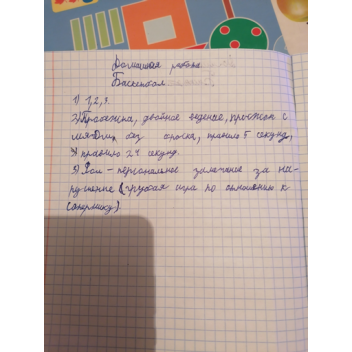 Домашная работа
Баскетбол.
1) 1,2,3.
2) Пробежка, двойное ведение, прыжок с
мячом без броска, правило 5 секунд,
правило 24 секунд.
3) Фол - персональное замечание за на-
рушение (грубая игра по отношению к
сопернику).